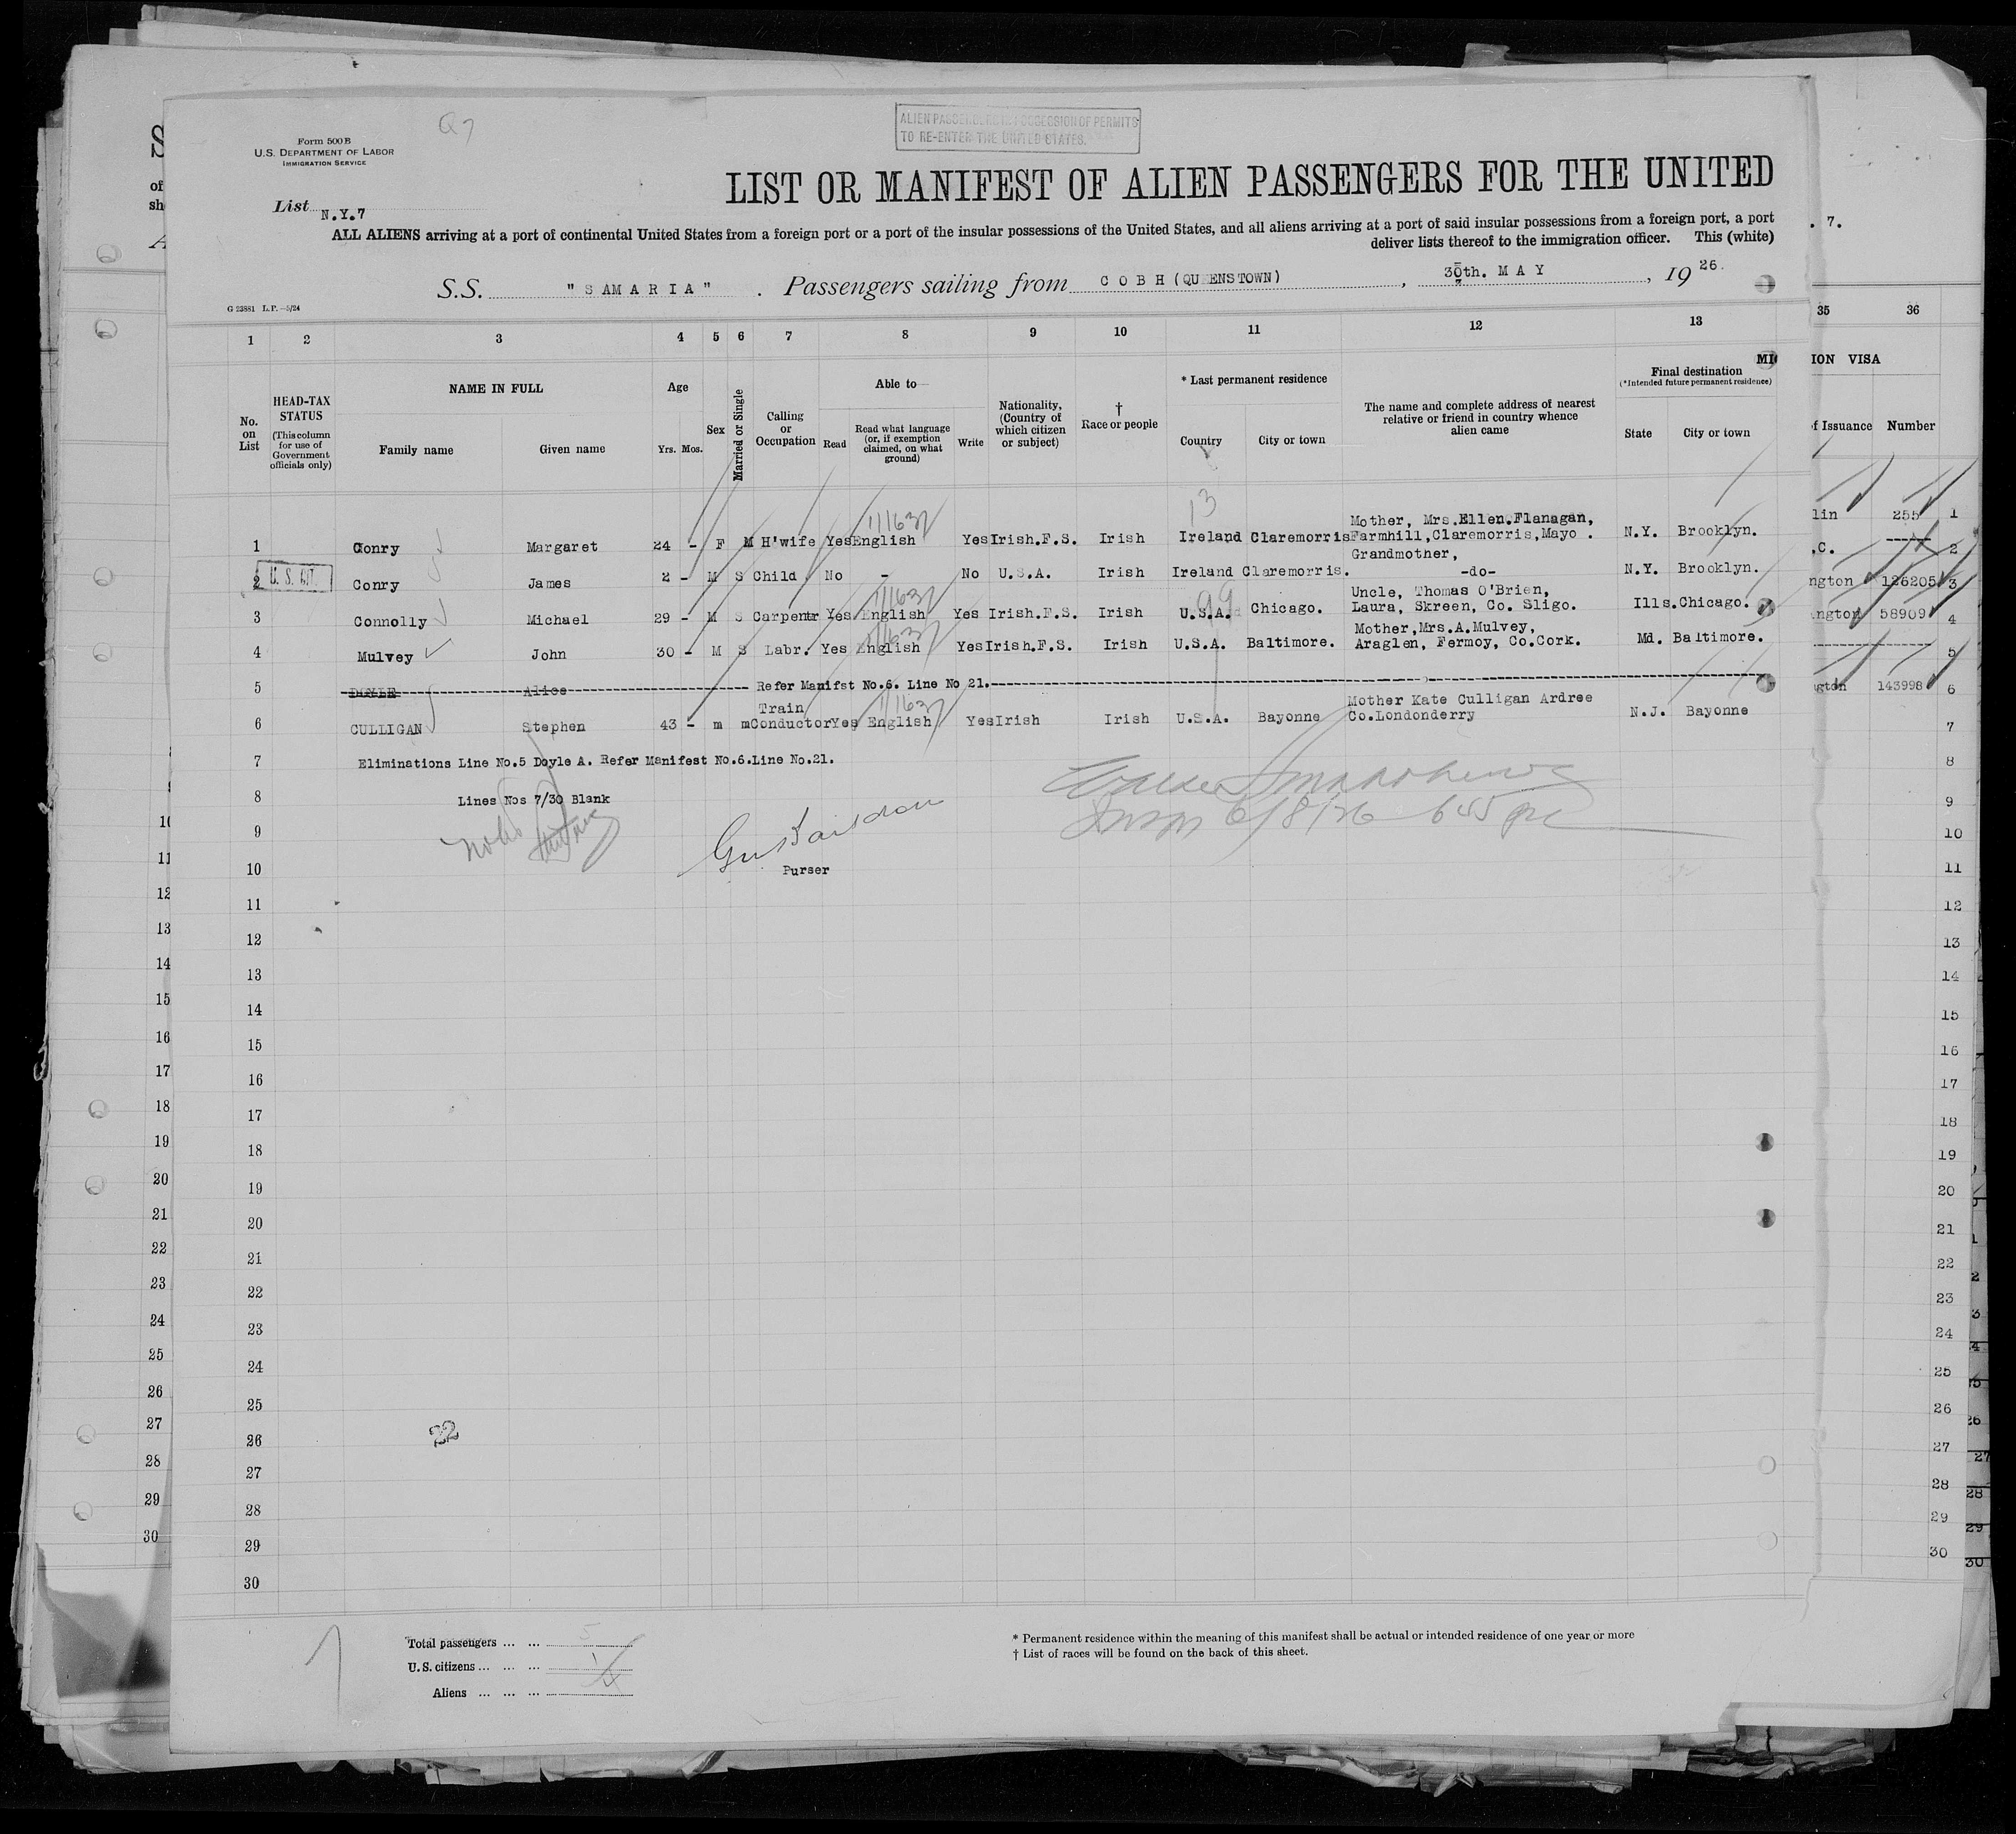 Q7
ALIEN PASSENGERS IN POSSESSION OF PERMITS
TO RE-ENTER THE UNITED STATES.
Form 500B
U.S. DEPARTMENT OF LABOR
IMMIGRATION SERVICE
LIST OR MANIFEST OF ALIEN PASSENGERS FOR THE UNITED
List N.Y.7
ALL ALIENS arriving at a port of continental United States from a foreign port or a port of the insular possessions of the United States, and all aliens arriving at a port of said insular possessions from a foreign port, a port
deliver lists thereof to the immigration officer. This (white)
S.S. "SAMARIA" . Passengers sailing from COBH (QUEENSTOWN) , 30th. MAY , 19 26.
G 23881 L.P.—5/24
1 2 3 4 5 6 7 8 9 10 11 12 13 35 36
No. on List
HEAD-TAX STATUS
(This column for use of Government officials only)
NAME IN FULL
Family name Given name
Age
Yrs. Mos.
Sex
Married or Single
Calling or Occupation
Able to
Read
Read what language (or, if exemption claimed, on what ground)
Write
Nationality, (Country of which citizen or subject)
† Race or people
* Last permanent residence
Country City or town
The name and complete address of nearest relative or friend in country whence alien came
Final destination
(*Intended future permanent residence)
State City or town
ION VISA
f Issuance Number
13
1 Conry Margaret 24 - F M H'wife Yes English Yes Irish.F.S. Irish Ireland Claremorris Mother, Mrs.Ellen.Flanagan, Farmhill,Claremorris,Mayo . N.Y. Brooklyn. lin 255 1
U. S. CIT.
2 Conry James 2 - M S Child No - No U.S.A. Irish Ireland Claremorris. Grandmother, -do- N.Y. Brooklyn. .C. ----- 2
99
3 Connolly Michael 29 - M S Carpentr Yes English Yes Irish.F.S. Irish U.S.A. Chicago. Uncle, Thomas O'Brien, Laura, Skreen, Co. Sligo. Ills. Chicago. ngton 126205 3
4 Mulvey John 30 - M S Labr. Yes English Yes Irish.F.S. Irish U.S.A. Baltimore. Mother,Mrs.A.Mulvey, Araglen, Fermoy, Co.Cork. Md. Baltimore. ngton 58909 4
5 DOYLE Alice Refer Manifst No.6. Line No 21. 5
6 CULLIGAN Stephen 43 - m m Train Conductor Yes English Yes Irish Irish U.S.A. Bayonne Mother Kate Culligan Ardree Co.Londonderry N.J. Bayonne ngton 143998 6
7 Eliminations Line No.5 Doyle A. Refer Manifest No.6.Line No.21.
8 Lines Nos 7/30 Blank
6/8/26
9
10 Purser
11
12
13
14
15
16
17
18
19
20
21
22
23
24
25
26 22
27
28
29
30
Total passengers ... ... 5
U.S. citizens ... ... ... 1
Aliens ... ... ... 4
* Permanent residence within the meaning of this manifest shall be actual or intended residence of one year or more
† List of races will be found on the back of this sheet.